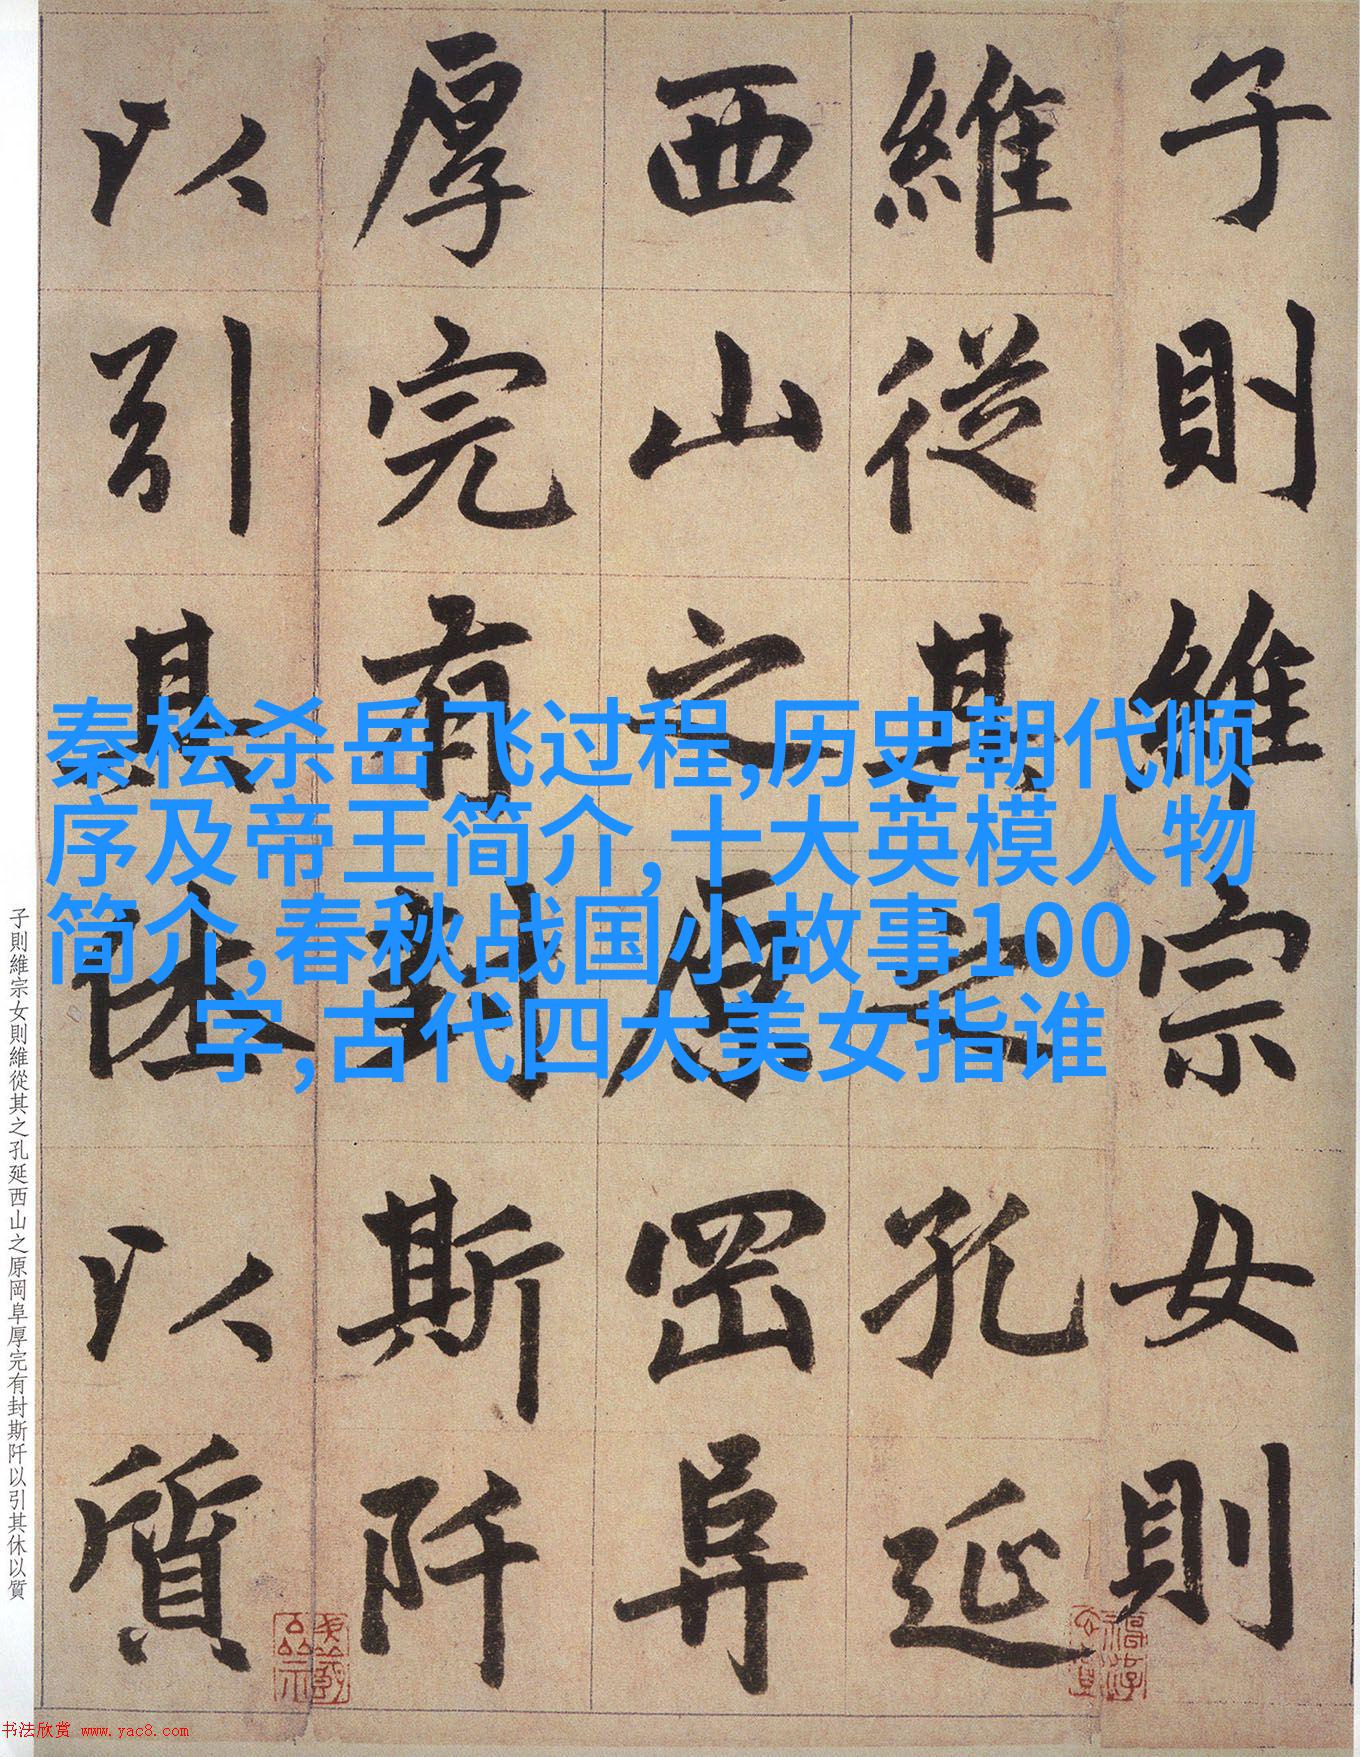 子則維宗女則
維從其之孔延
西山之原岡阜
厚完有封斯阡
以引其休以質
秦桧杀岳飞过程,历史朝代顺
序及帝王简介,十大英模人物
简介,春秋战国小故事100
字,古代四大美女指谁
子則維宗女則維從其之孔延西山之原岡阜厚完有封斯阡以引其休以質
书法欣赏 www.yac8.com